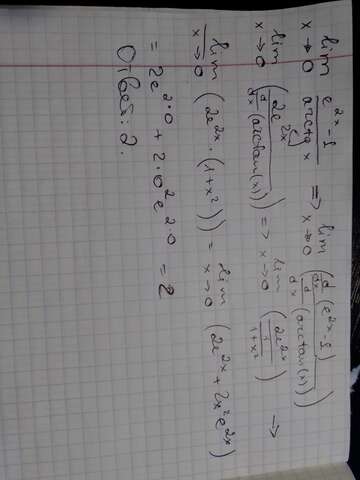 lim x→0 (e^2x - 1)/(arctg x) => lim x→0 ((d/dx (e^2x - 1))/(d/dx (arctan(x))))
lim x→0 ((2e^2x)/(d/dx (arctan(x)))) => lim x→0 ((2e^2x)/(1/(1+x^2))) →
lim x→0 (2e^2x · (1+x^2)) = lim x→0 (2e^2x + 2x^2e^2x)
= 2e^2·0 + 2·0^2e^2·0 = 2
Ответ: 2.